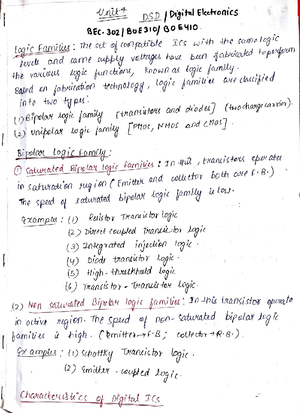 Unit 4
DSD / Digital Electronics
BEC-302/BOE310/BOE410
Logic Families: The set of compatible ICs with the same logic
levels and same supply voltages have been fabricated to perform
the various logic functions, known as logic family.
Based on fabrication technology, logic families are classified
into two types:
(1) Bipolar logic family [transistors and diodes] (two charge carrier).
(2) Unipolar logic family [PMOS, NMOS and CMOS].
Bipolar Logic Family:
(1) Saturated Bipolar logic families: In this, transistors operate
in saturation region (Emitter and collector both are F.B.)
The speed of saturated bipolar logic family is low.
Examples: (1) Resistor Transistor logic
(2) Direct coupled Transistor logic
(3) Integrated injection logic.
(4) Diode transistor logic.
(5) High-threshold logic
(6) Transistor-Transistor logic.
(2) Non saturated Bipolar logic families: In this transistor operate
in active region. The speed of non-saturated bipolar logic
families is high. (Emitter→F.B; collector→R.B.).
Examples: (1) Schottky Transistor logic.
(2) Emitter-coupled logic.
Characteristics of Digital ICs